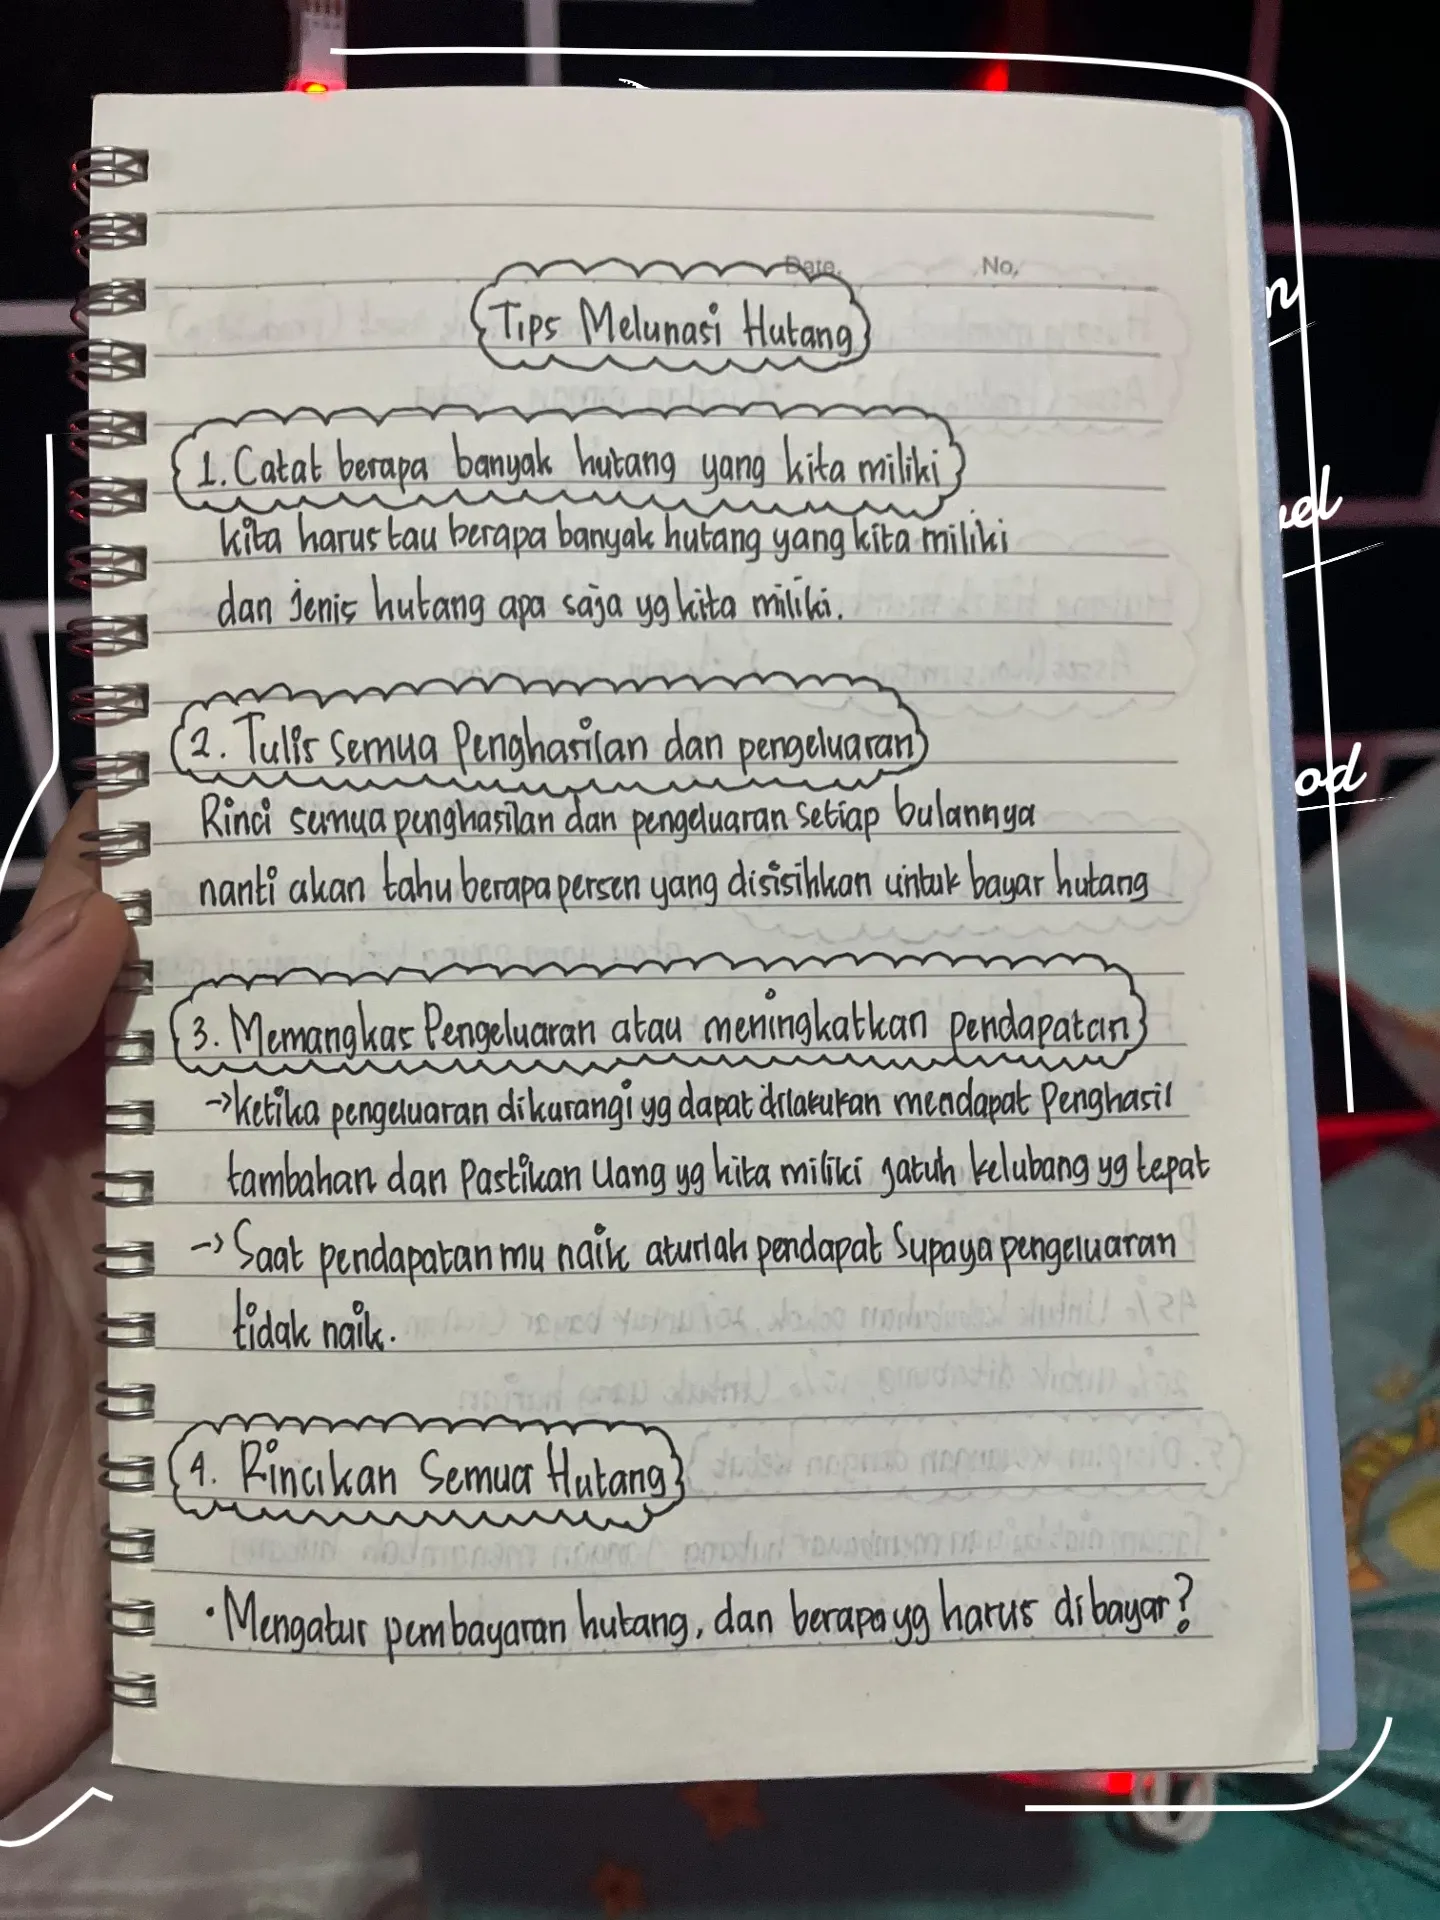 Date.
No,
Tips Melunasi Hutang
1. Catat berapa banyak hutang yang kita miliki
kita harus tau berapa banyak hutang yang kita miliki
dan jenis hutang apa saja yg kita miliki.
2. Tulis semua Penghasilan dan pengeluaran
Rinci semua penghasilan dan pengeluaran setiap bulannya
nanti akan tahu berapa persen yang disisihkan untuk bayar hutang
3. Memangkas Pengeluaran atau meningkatkan pendapatan
->ketika pengeluaran dikurangi yg dapat dilakukan mendapat Penghasil
tambahan dan Pastikan Uang yg kita miliki jatuh kelubang yg tepat
-> Saat pendapatan mu naik aturlah pendapat Supaya pengeluaran
tidak naik.
4. Rincikan Semua Hutang
• Mengatur pembayaran hutang, dan berapa yg harus dibayar?